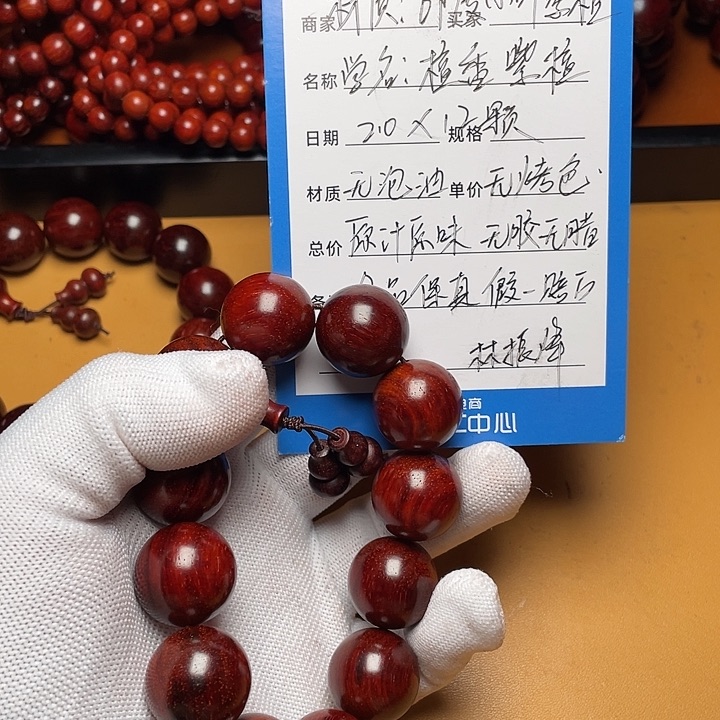 商家 买家
名称 学名：檀香紫檀
日期 2.0×12颗 规格
材质 无泡油 单价 无烤色
总价 原汁原味 无胶无腊
保真 假一赔百
林振峰
电商
中心